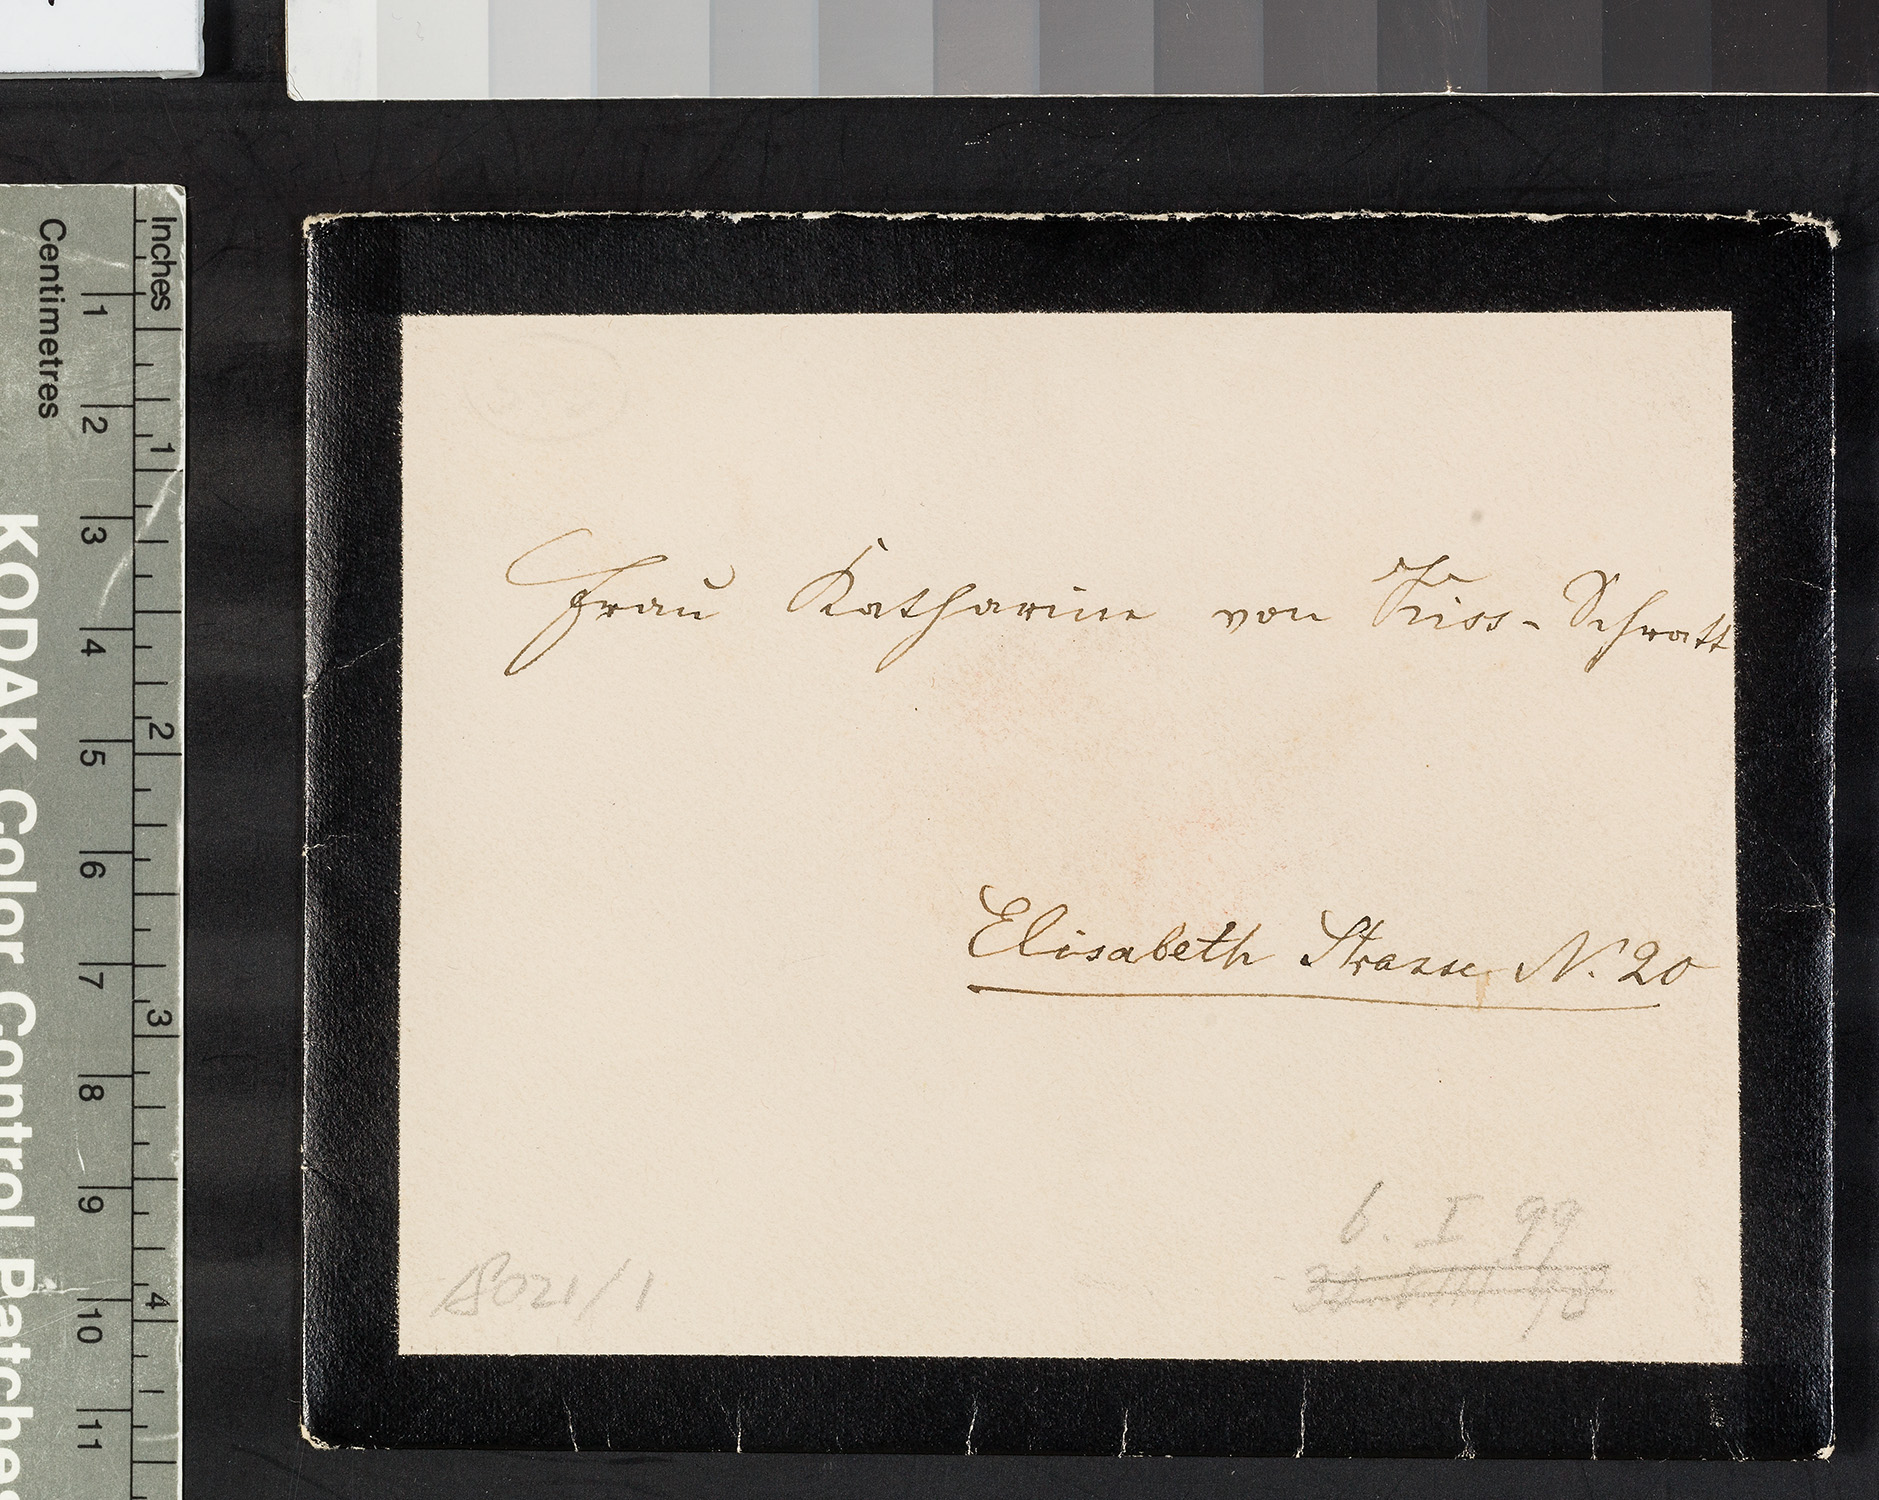 Inches
Centimetres
1 2 3 4
1 2 3 4 5 6 7 8 9 10 11
KODAK Color Control Patches
Frau Katharine von Kiss-Schratt
Elisabeth Strasse N. 20
6. I 99
30. VIII 98
021/1